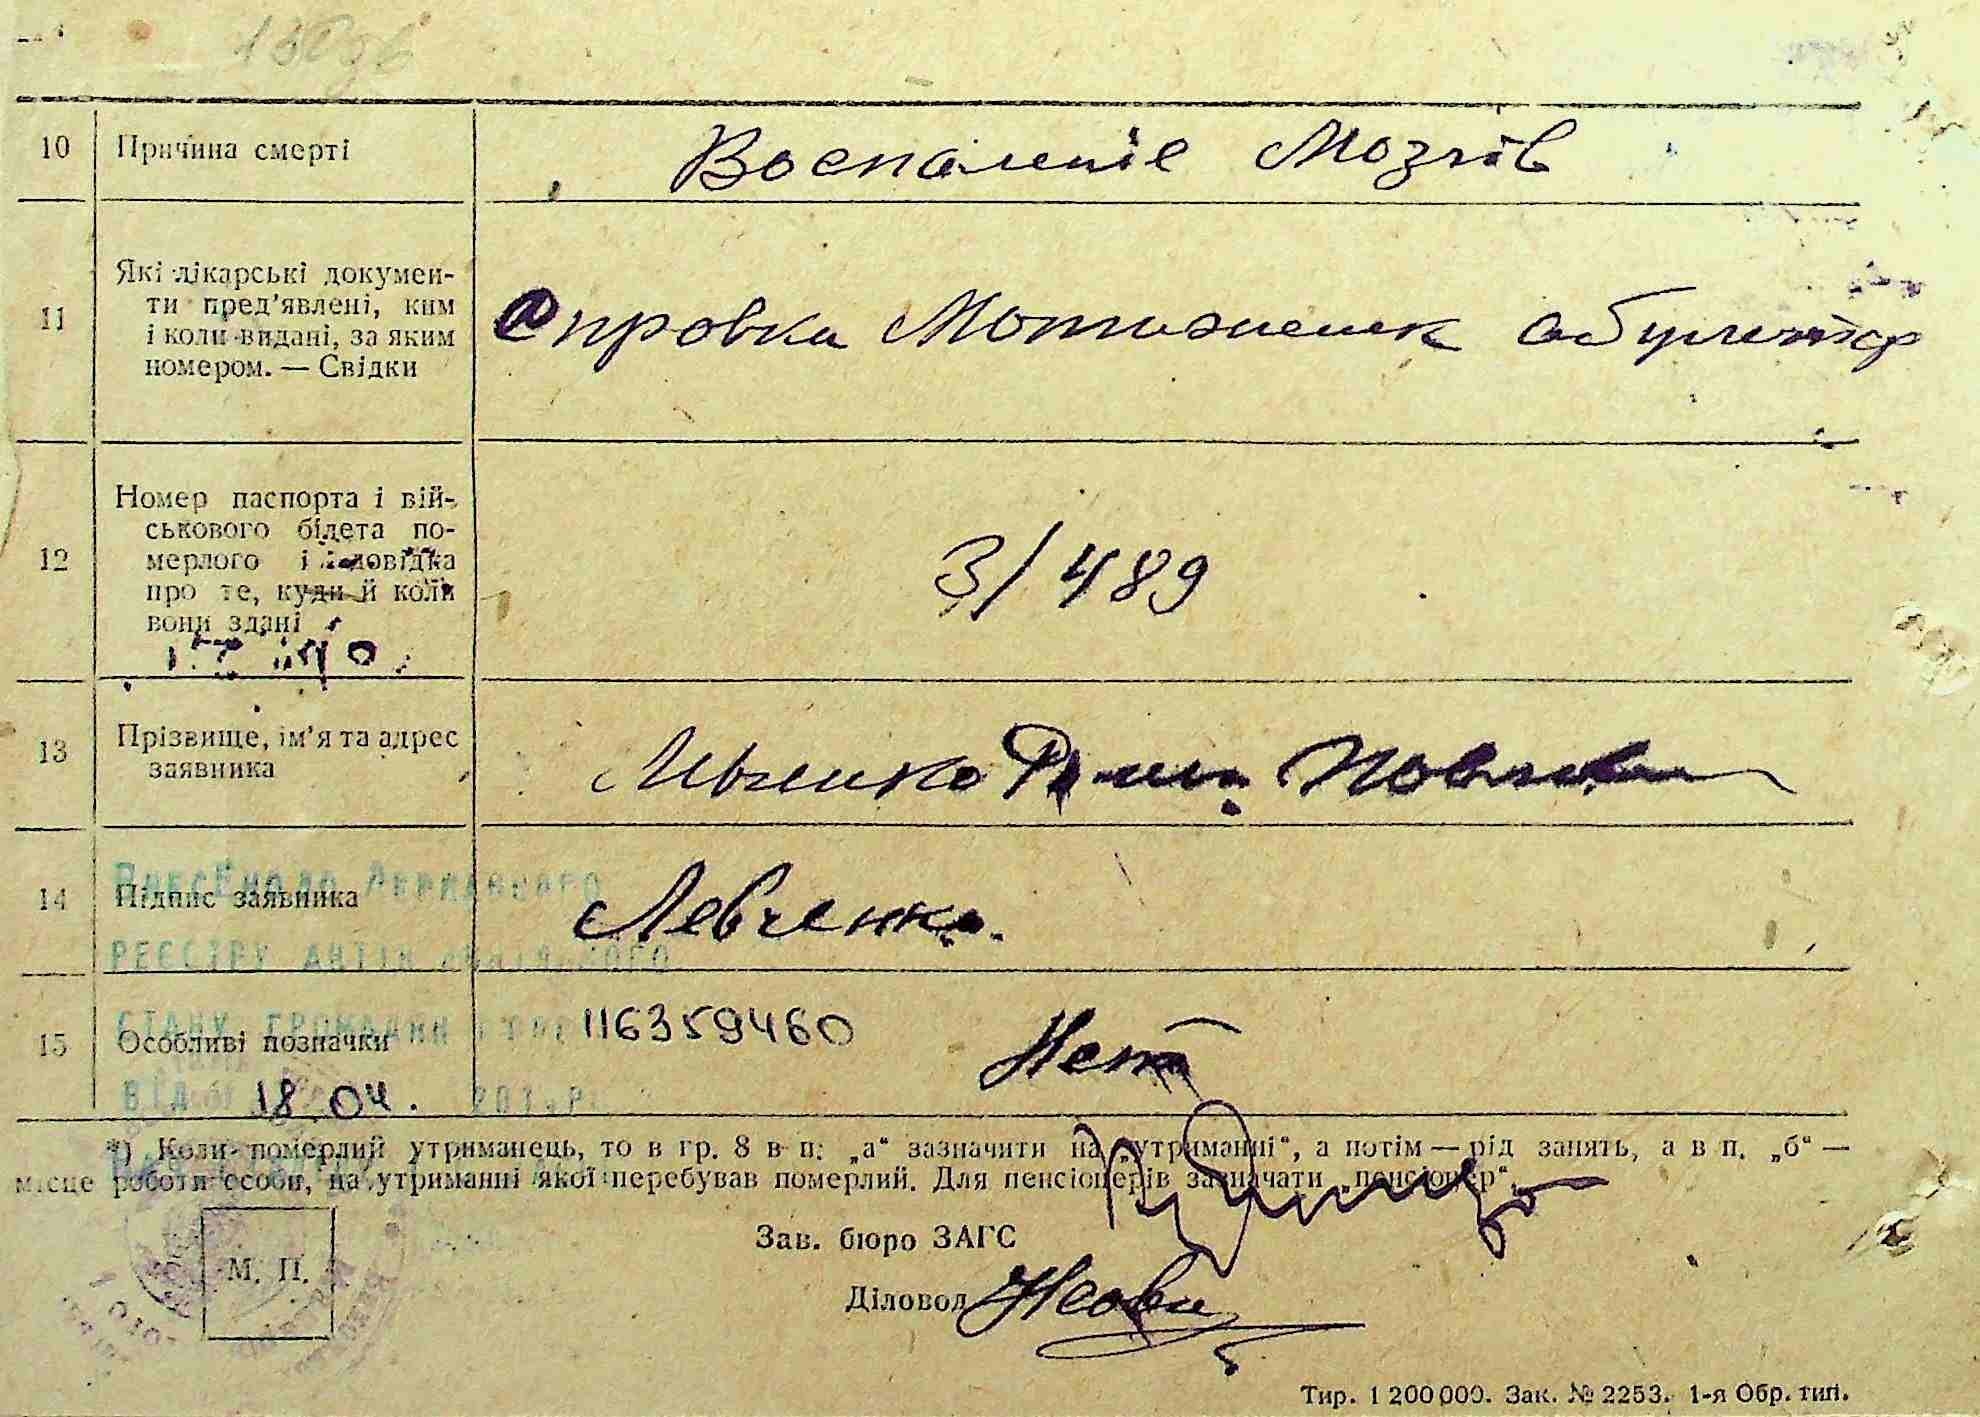 10 Причина смерті Воспаленіе Мозгів
11 Які лікарські докумен-
ти пред'явлені, ким
і коли видані, за яким
номером. — Свідки
Справка Мотиженск
12 Номер паспорта і вій-
ськового білета по-
мерлого і довідка
про те, куди й коли
вони здані
3/489
13 Прізвище, ім'я та адрес
заявника
Левченко
14 Підпис заявника Левченко.
РЕЄСТРУ АКТІВ
СТАНУ ГРОМАДЯН
15 Особливі позначки 116359460 Нет
ВІД 18.04. 201 р.
*) Коли померлий утриманець, то в гр. 8 в п: „а“ зазначити на „утриманні“, а потім — рід занять, а в п. „б“ —
місце роботи особи, на утриманні якої перебував померлий. Для пенсіонерів зазначати „пенсіонер“.
Зав. бюро ЗАГС
М. П.
Діловод
Тир. 1 200 000. Зак. № 2253. 1-я Обр. тип.